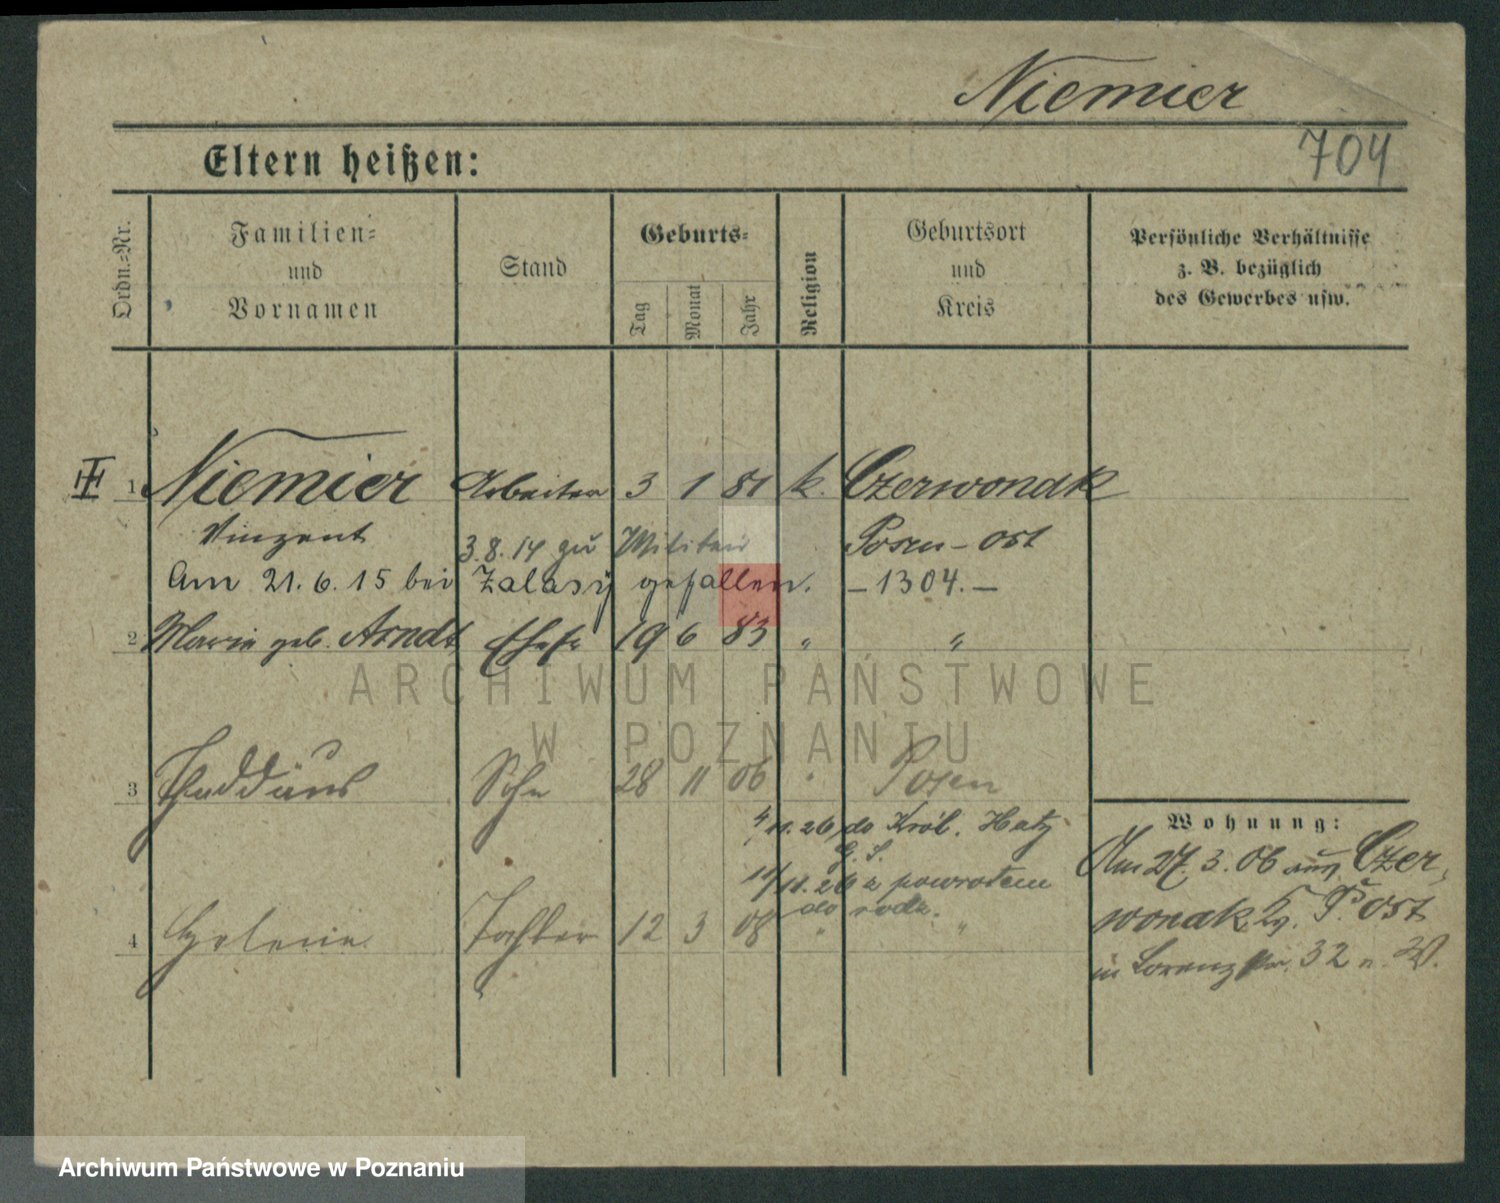 Niemier
704
Eltern heißen:
Ordn.-Nr.
Familien- und Vornamen
Stand
Geburts-
Tag
Monat
Jahr
Religion
Geburtsort und Kreis
Persönliche Verhältnisse
z. B. bezüglich
des Gewerbes usw.
1 Niemier Arbeiter 3 1 81 k. Czerwonak
Vinzent 3.8.14 zu Militär Posen-Ost
Am 21.6.15 bei Zalasy gefallen. -1304.-
2 Marie geb. Arndt Ehefr 19 6 83 " "
ARCHIWUM PAŃSTWOWE
W POZNANIU
3 Thaddäus Sohn 28 11 06 " Posen
4/11.26 do Król. Huty
G. S.
11/11.26 z powrotem
do rodz.
4 Helene Tochter 12 3 08 " "
Wohnung:
Am 27.3.06 aus Czer-
wonak, Kr. P. Ost
in Lorenzstr. 32 n. W.
Archiwum Państwowe w Poznaniu